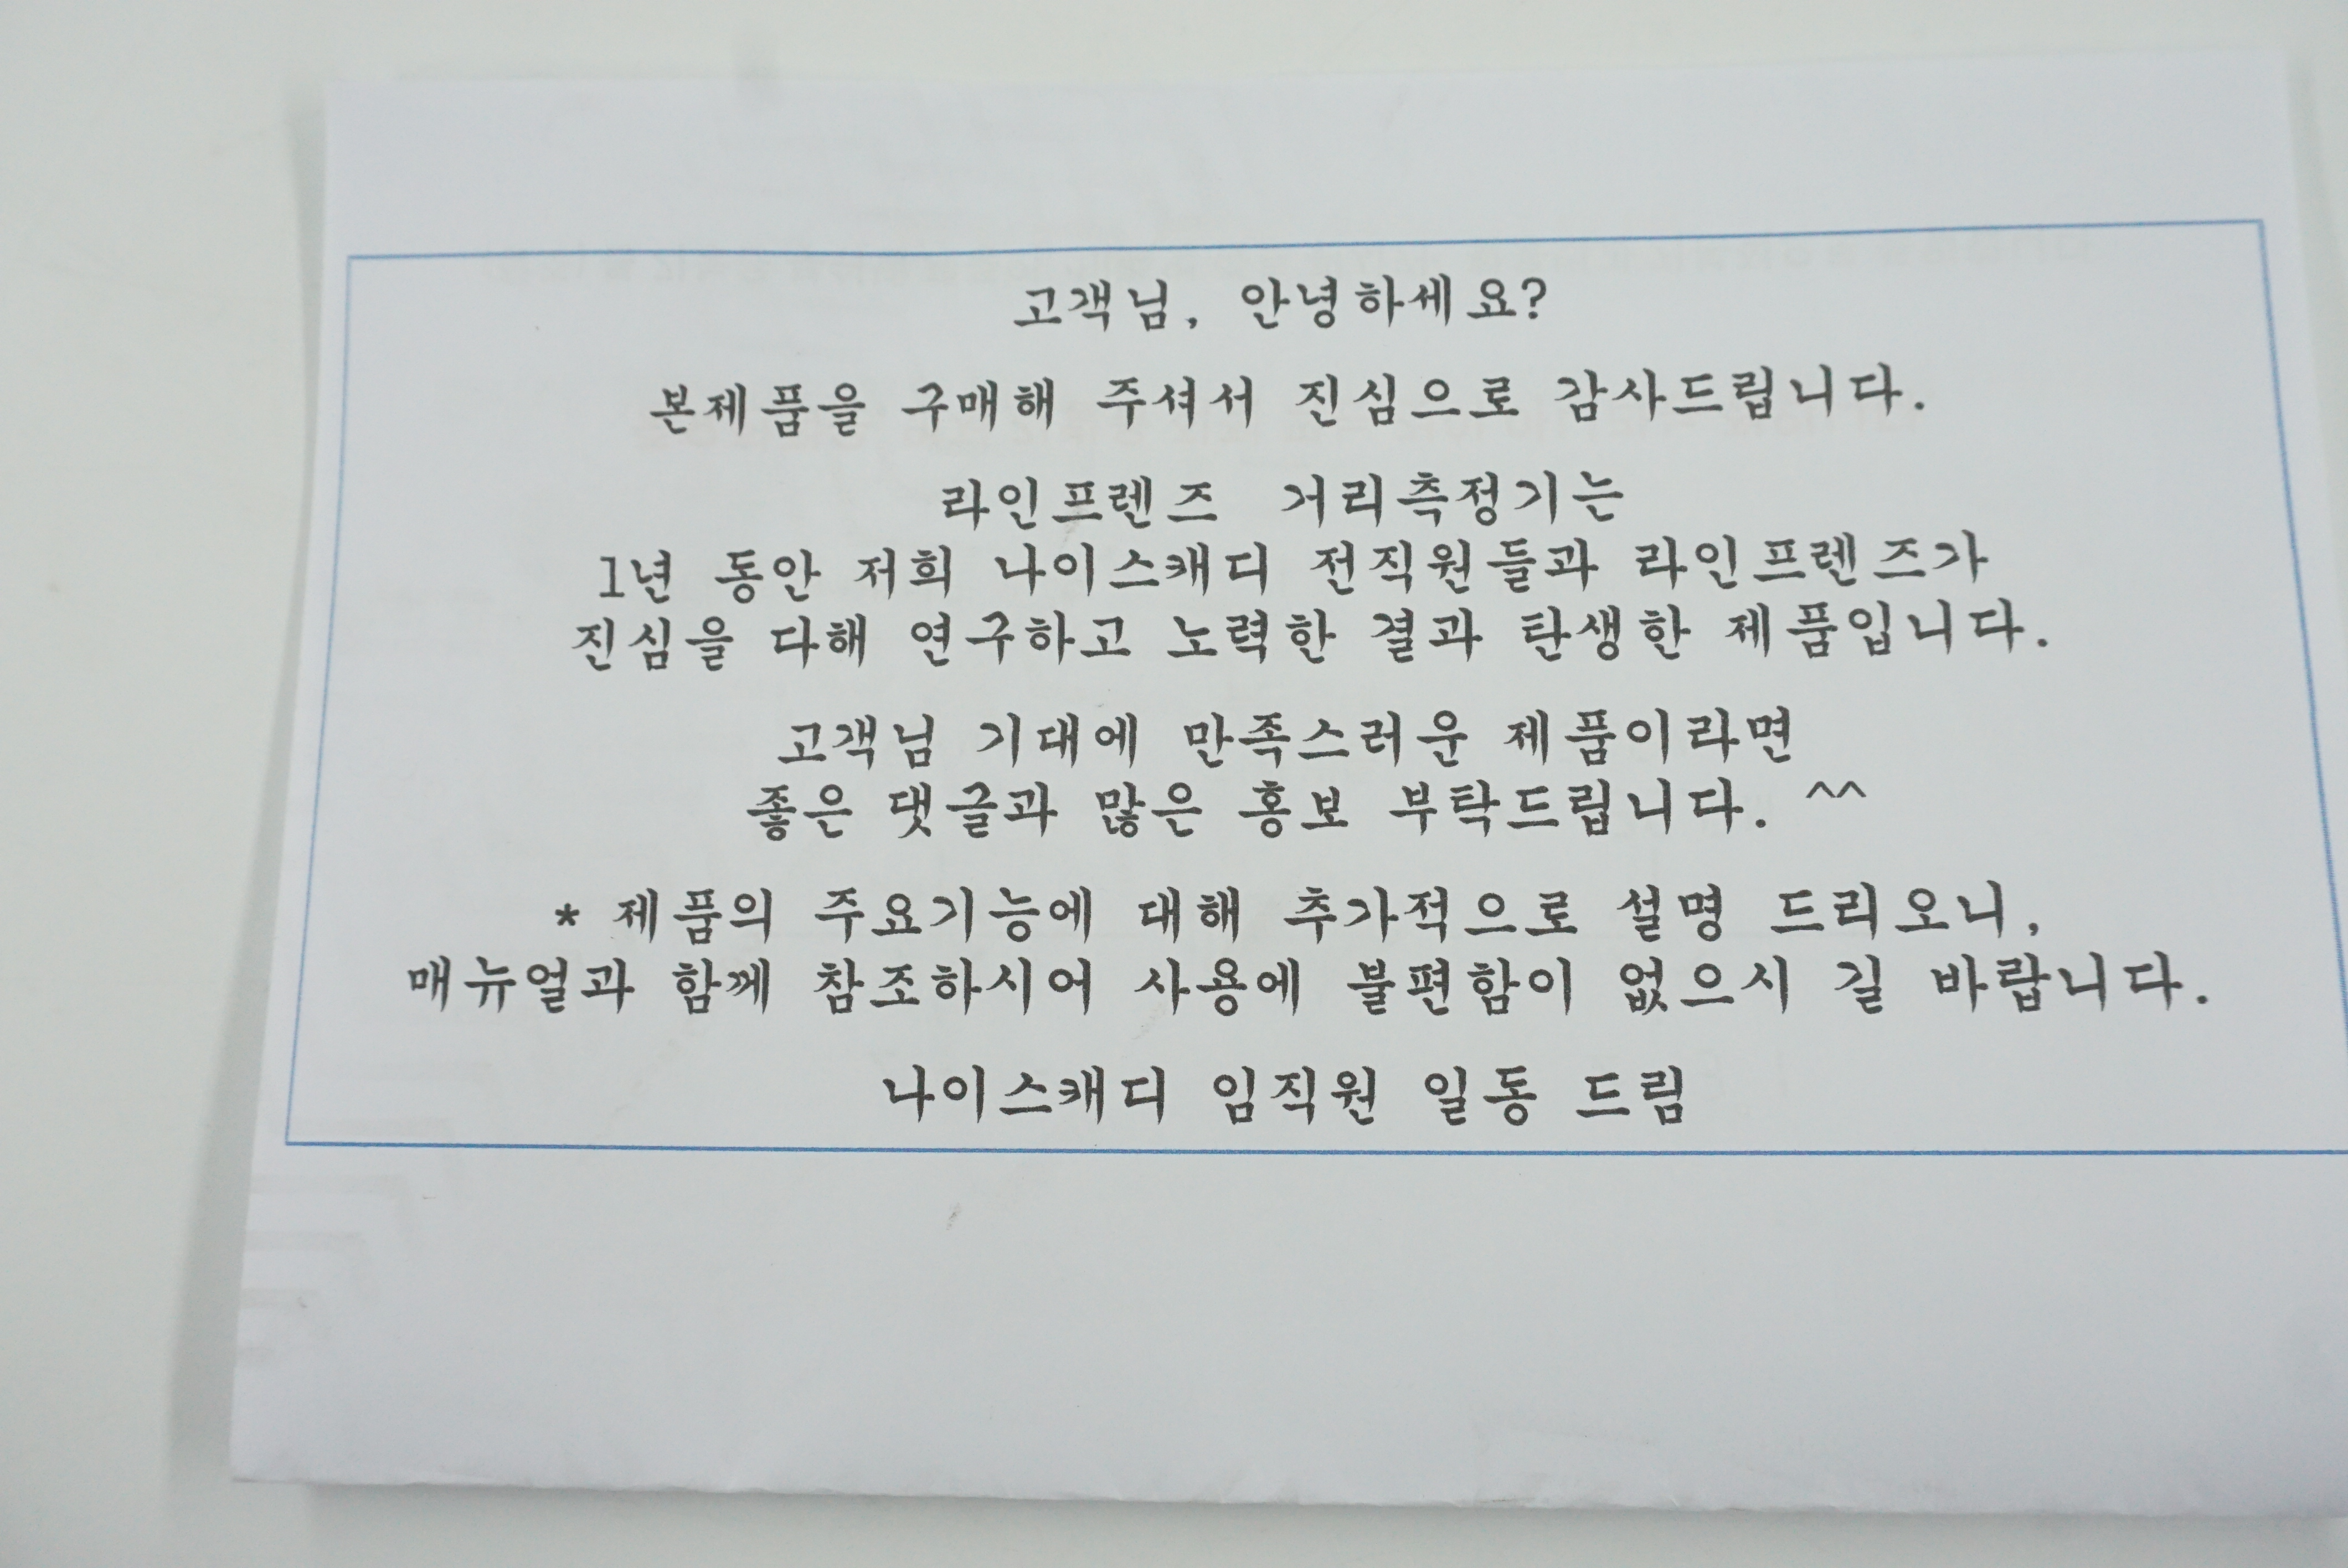 고객님, 안녕하세요?
본제품을 구매해 주셔서 진심으로 감사드립니다.
라인프렌즈 거리측정기는
1년 동안 저희 나이스캐디 전직원들과 라인프렌즈가
진심을 다해 연구하고 노력한 결과 탄생한 제품입니다.
고객님 기대에 만족스러운 제품이라면
좋은 댓글과 많은 홍보 부탁드립니다. ^^
* 제품의 주요기능에 대해 추가적으로 설명 드리오니,
매뉴얼과 함께 참조하시어 사용에 불편함이 없으시 길 바랍니다.
나이스캐디 임직원 일동 드림